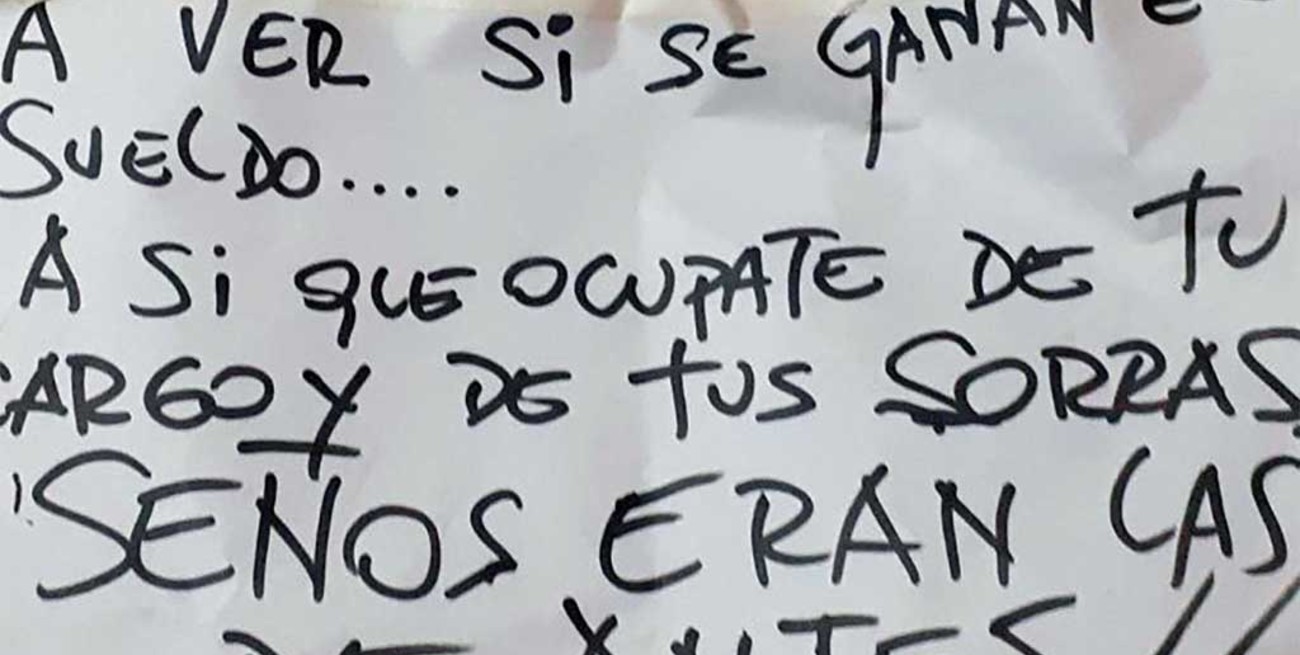 A VER SI SE GANAN E
SUELDO....
A SI QUE OCUPATE DE TU
CARGO Y DE TUS SORRAS
¡SEÑOS ERAN LAS